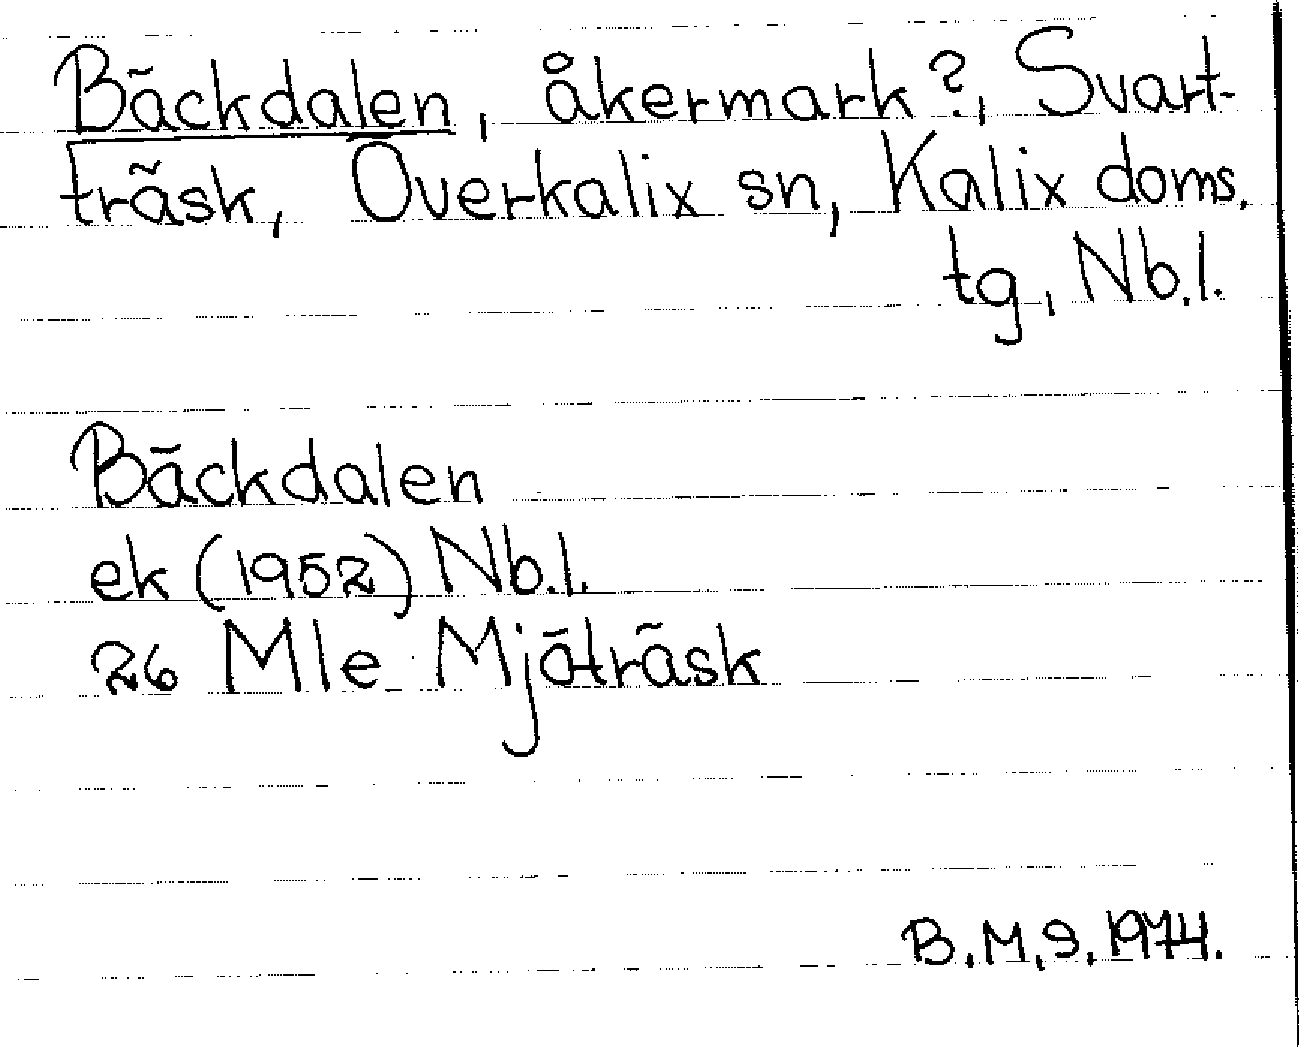 Bäckdalen, åkermark?, Svart-
träsk, Överkalix sn, Kalix doms.
tg, Nb.l.
Bäckdalen
ek (1952) Nb.l.
26 Mle Mjöträsk
B.M, 9. 1974.